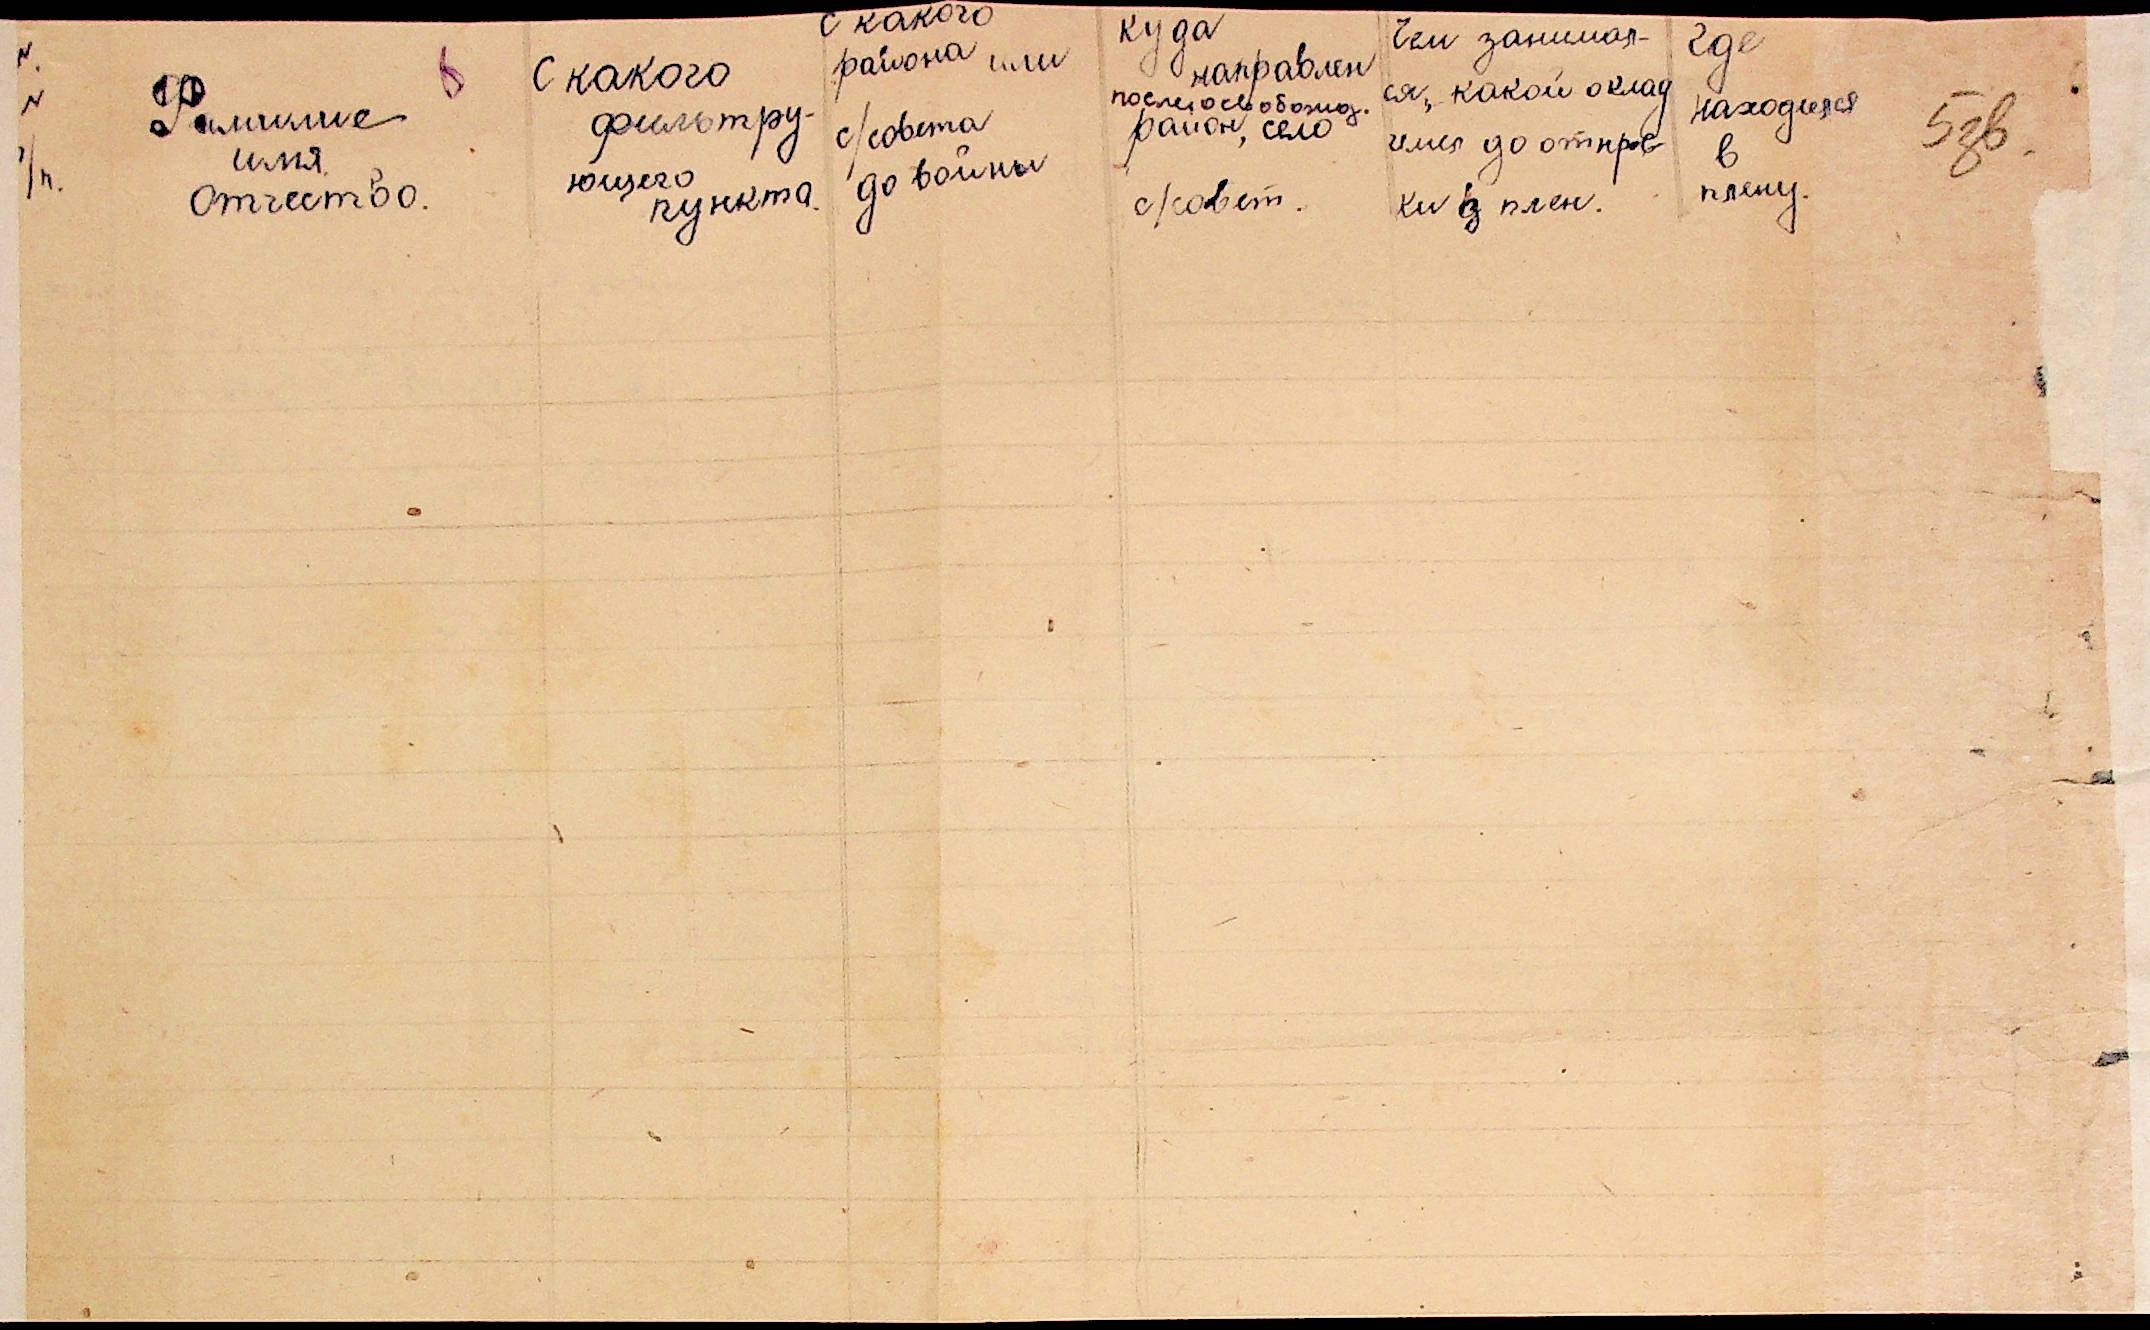 N.
N
п/п.
Фамилие
имя
отчество.
в
С какого
фильтру-
ющего
пункта.
С какого
района или
с/совета
до войны
куда
направлен
после освобожд.
район, село
с/совет.
Чем занимал-
ся, какой оклад
имел до отправ
ки в плен.
Где
находился
в
плену.
5зв.